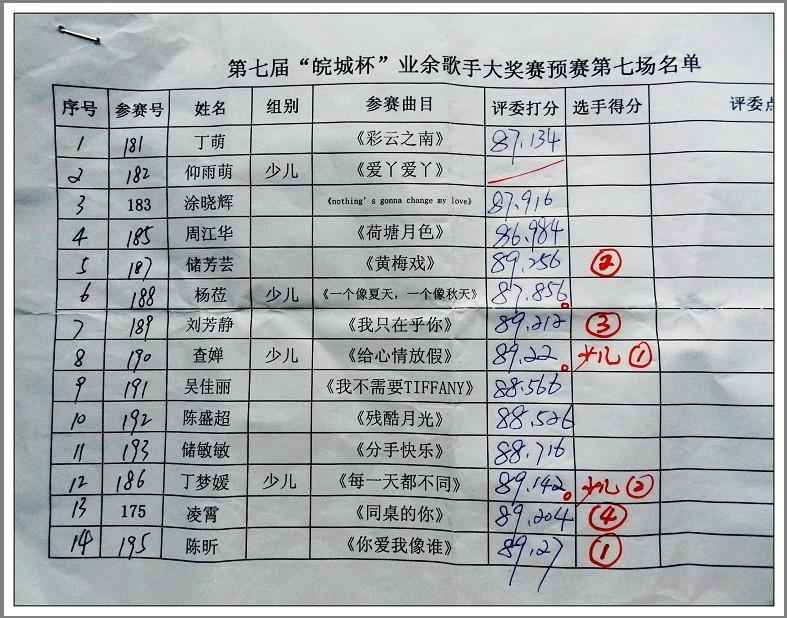 第七届“皖城杯”业余歌手大奖赛预赛第七场名单
序号 参赛号 姓名 组别 参赛曲目 评委打分 选手得分 评委点
1 181 丁萌 《彩云之南》 87.134
2 182 仰雨萌 少儿 《爱丫爱丫》
3 183 涂晓辉 《nothing's gonna change my love》 87.916
4 185 周江华 《荷塘月色》 86.984
5 187 储芳芸 《黄梅戏》 89.256 ②
6 188 杨莅 少儿 《一个像夏天，一个像秋天》 87.856
7 189 刘芳静 《我只在乎你》 89.212 ③
8 190 查婵 少儿 《给心情放假》 89.22 少儿 ①
9 191 吴佳丽 《我不需要TIFFANY》 88.566
10 192 陈盛超 《残酷月光》 88.526
11 193 储敏敏 《分手快乐》 88.716
12 186 丁梦媛 少儿 《每一天都不同》 89.142 少儿 ②
13 175 凌霄 《同桌的你》 89.204 ④
14 195 陈昕 《你爱我像谁》 89.27 ①